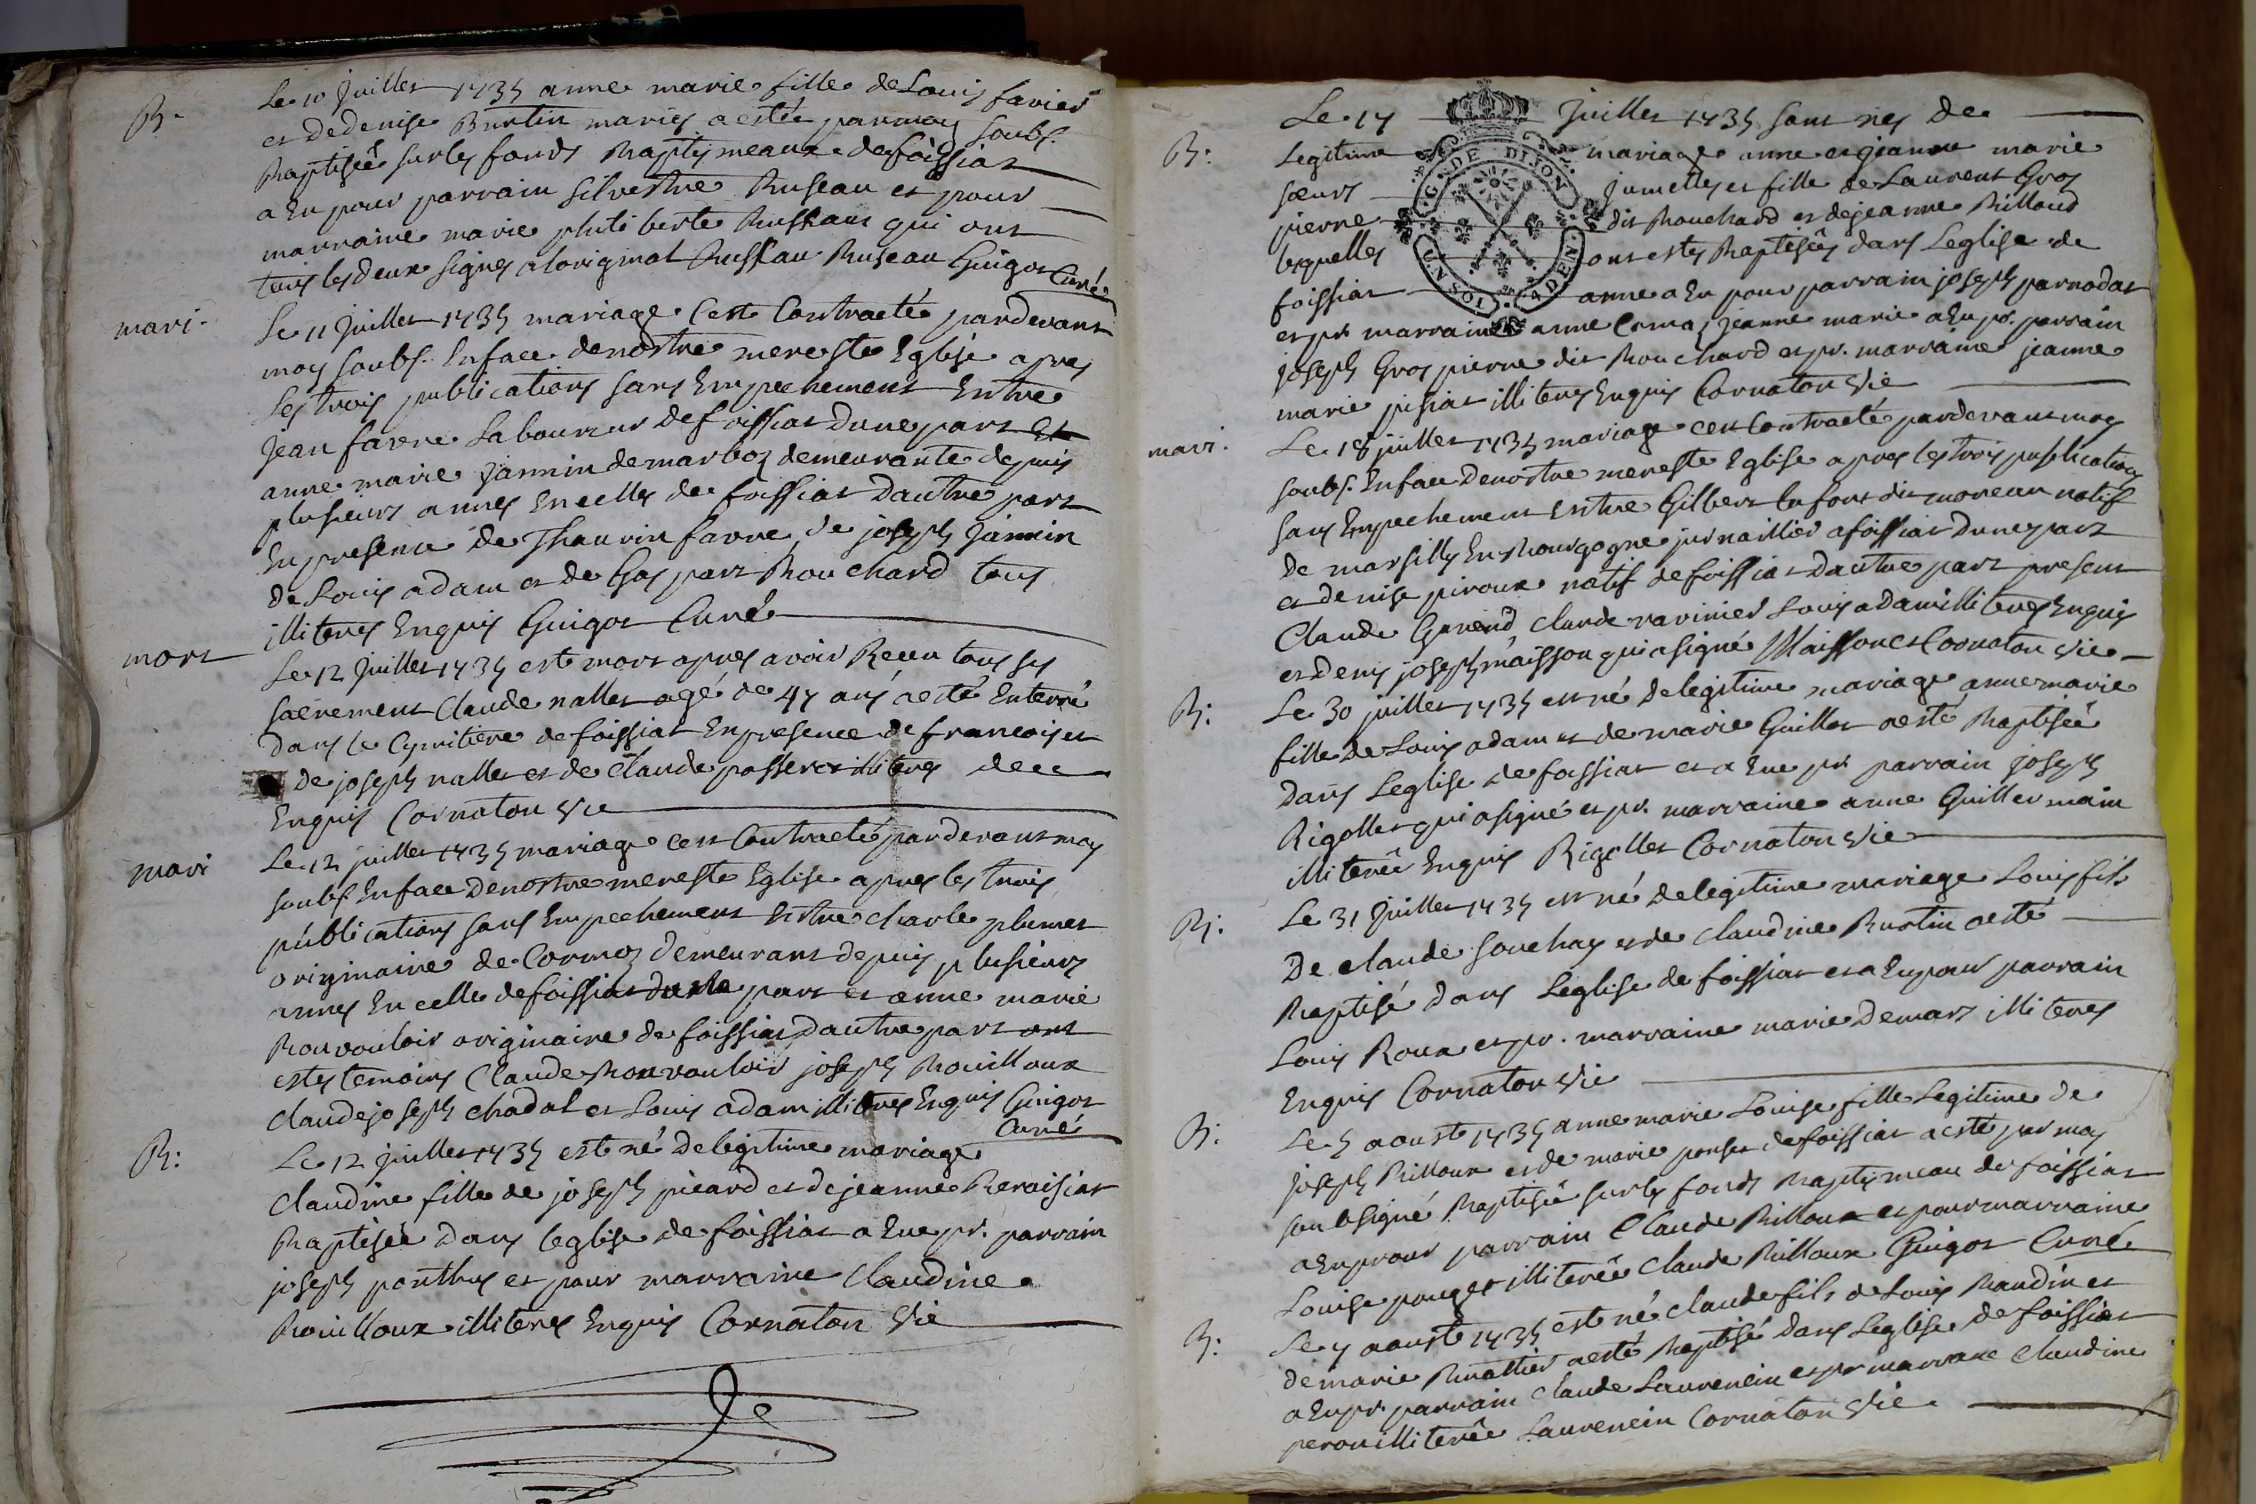 B.
Le 10 Juillet 1735 anne marie fille de Louis favier
et de denise Burtin mariés a esté par moy soubs.
Baptisée sur les fonds Baptismeaux de foissiat
a Eu pour parrain Silvestre Ruseau et pour
marraine marie philiberte Russeau qui ont
tous les deux signés a loriginal Russeau Ruseau Guigot Curé
mari.
Le 11 Juillet 1735 mariage cest Contracté pardevant
moy soubs. En face de nostre mere ste Eglise apres
les trois publications sans Empechement Entre
Jean favre Laboureur de foissiat dune part Et
anne marie Jannin de marboz demeurante depuis
plusieurs annes En celles de foissiat dautre part
En presence de Thaurin favre, de joseph Jannin
de Louis adam et de Gaspart Bouchard tous
illiteres Enquis Guigot Curé
mort
Le 12 Juillet 1735 est mort apres avoir Receu tous ses
sacrement Claude nallet agé de 47 ans a esté Enterré
dans le Cymitiere de foissiat En presence de francois et
de joseph nallet et de Claude illiteres de ce
Enquis Cornaton Vic
mari
Le 12 juillet 1735 mariage cest Contracté pardevant moy
soubs. En face de nostre mere ste Eglise apres les trois
publications sans Empechement Entre charle plumet
originaire de Cormoz demeurant depuis plusieurs
annes En celle de foissiat dune part et anne marie
Bonvouloir originaire de foissiat dautre part ont
estes temoins Claude Bonvouloir joseph Bouilloux
Claude joseph chadal et Louis adam illiteres Enquis Guigot
Curé
B:
Le 12 juillet 1735 est né de legitime mariage
Claudine fille de joseph picard et de jeanne Beraisiat
Baptisée dans leglise de foissiat a Eue pr. parrain
joseph ponthus et pour marraine Claudine
Bouilloux illiteres Enquis Cornaton Vic
B:
Le 17 Juillet 1735 sont nés de
Legitime mariage anne et jeanne marie
sœurs jumelles et fille de Laurent Gros
pierre dit Bouchard et de jeanne Billoud
lesquelles ont estes Baptisées dans Leglise de
foissiat anne a Eu pour parrain joseph parnodat
et pr. marraine anne jeanne marie a Eu pr. parrain
joseph Gros pierre dit Bouchard et pr. marraine jeanne
marie pisiat illiteres Enquis Cornaton Vic
G. DE DIJON
mari.
Le 18 juillet 1735 mariage cest Contracté pardevant moy
soubs. En face de nostre mere ste Eglise apres les trois publications
sans Empechement Entre Gilbert la font dit moreau natif
de marsilly En Bourgogne jurnaillier a foissiat dune part
et denise piroux natif de foissiat dautre part present
Claude Gavend, claude ravinier Louis adam illiteres Enquis
et denis joseph maisson qui a signé Maisson et Cornaton Vic
B:
Le 30 juillet 1735 est né de legitime mariage anne marie
fille de Louis adam et de marie Guillet a esté Baptisée
dans Leglise de foissiat et a Eue pr. parrain joseph
Rigollet qui a signé et pr. marraine anne Guillermain
illiterée Enquis Rigollet Cornaton Vic
B:
Le 31 Juillet 1735 est né de legitime mariage Louis fils
De claude souchay et de claudine Burtin a esté
Baptisé dans Leglise de foissiat et a Eu pour parrain
Louis Roux et pr. marraine marie Demars illiteres
Enquis Cornaton Vic
B:
Le 5 aoust 1735 anne marie Louise fille Legitime de
joseph Billoux et de marie ponset de foissiat a esté par moy
soubsigné Baptisée sur les fonds Baptismeau de foissiat
a Eu pour parrain Claude Billoux et pour marraine
Louise pouget illiterée Claude Billoux Guigot Curé
B:
Le 7 aoust 1735 est né claude fils de Louis Baudin et
de marie Buattier a esté Baptisé dans Leglise de foissiat
a Eu pr. parrain Claude Laurencin et pr marrane Claudine
peron illiterée Laurencin Cornaton Vic.